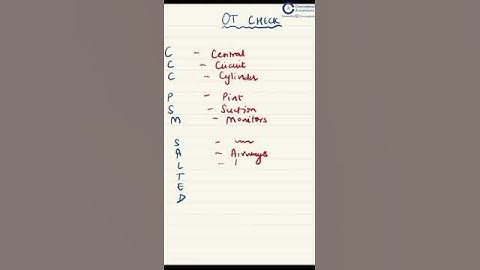 OT CHECK
C - Central
C - Circuit
C - Cylinder
P - Pint
S - Suction
M - Monitors
S -
A - Airways
L -
T
E
D